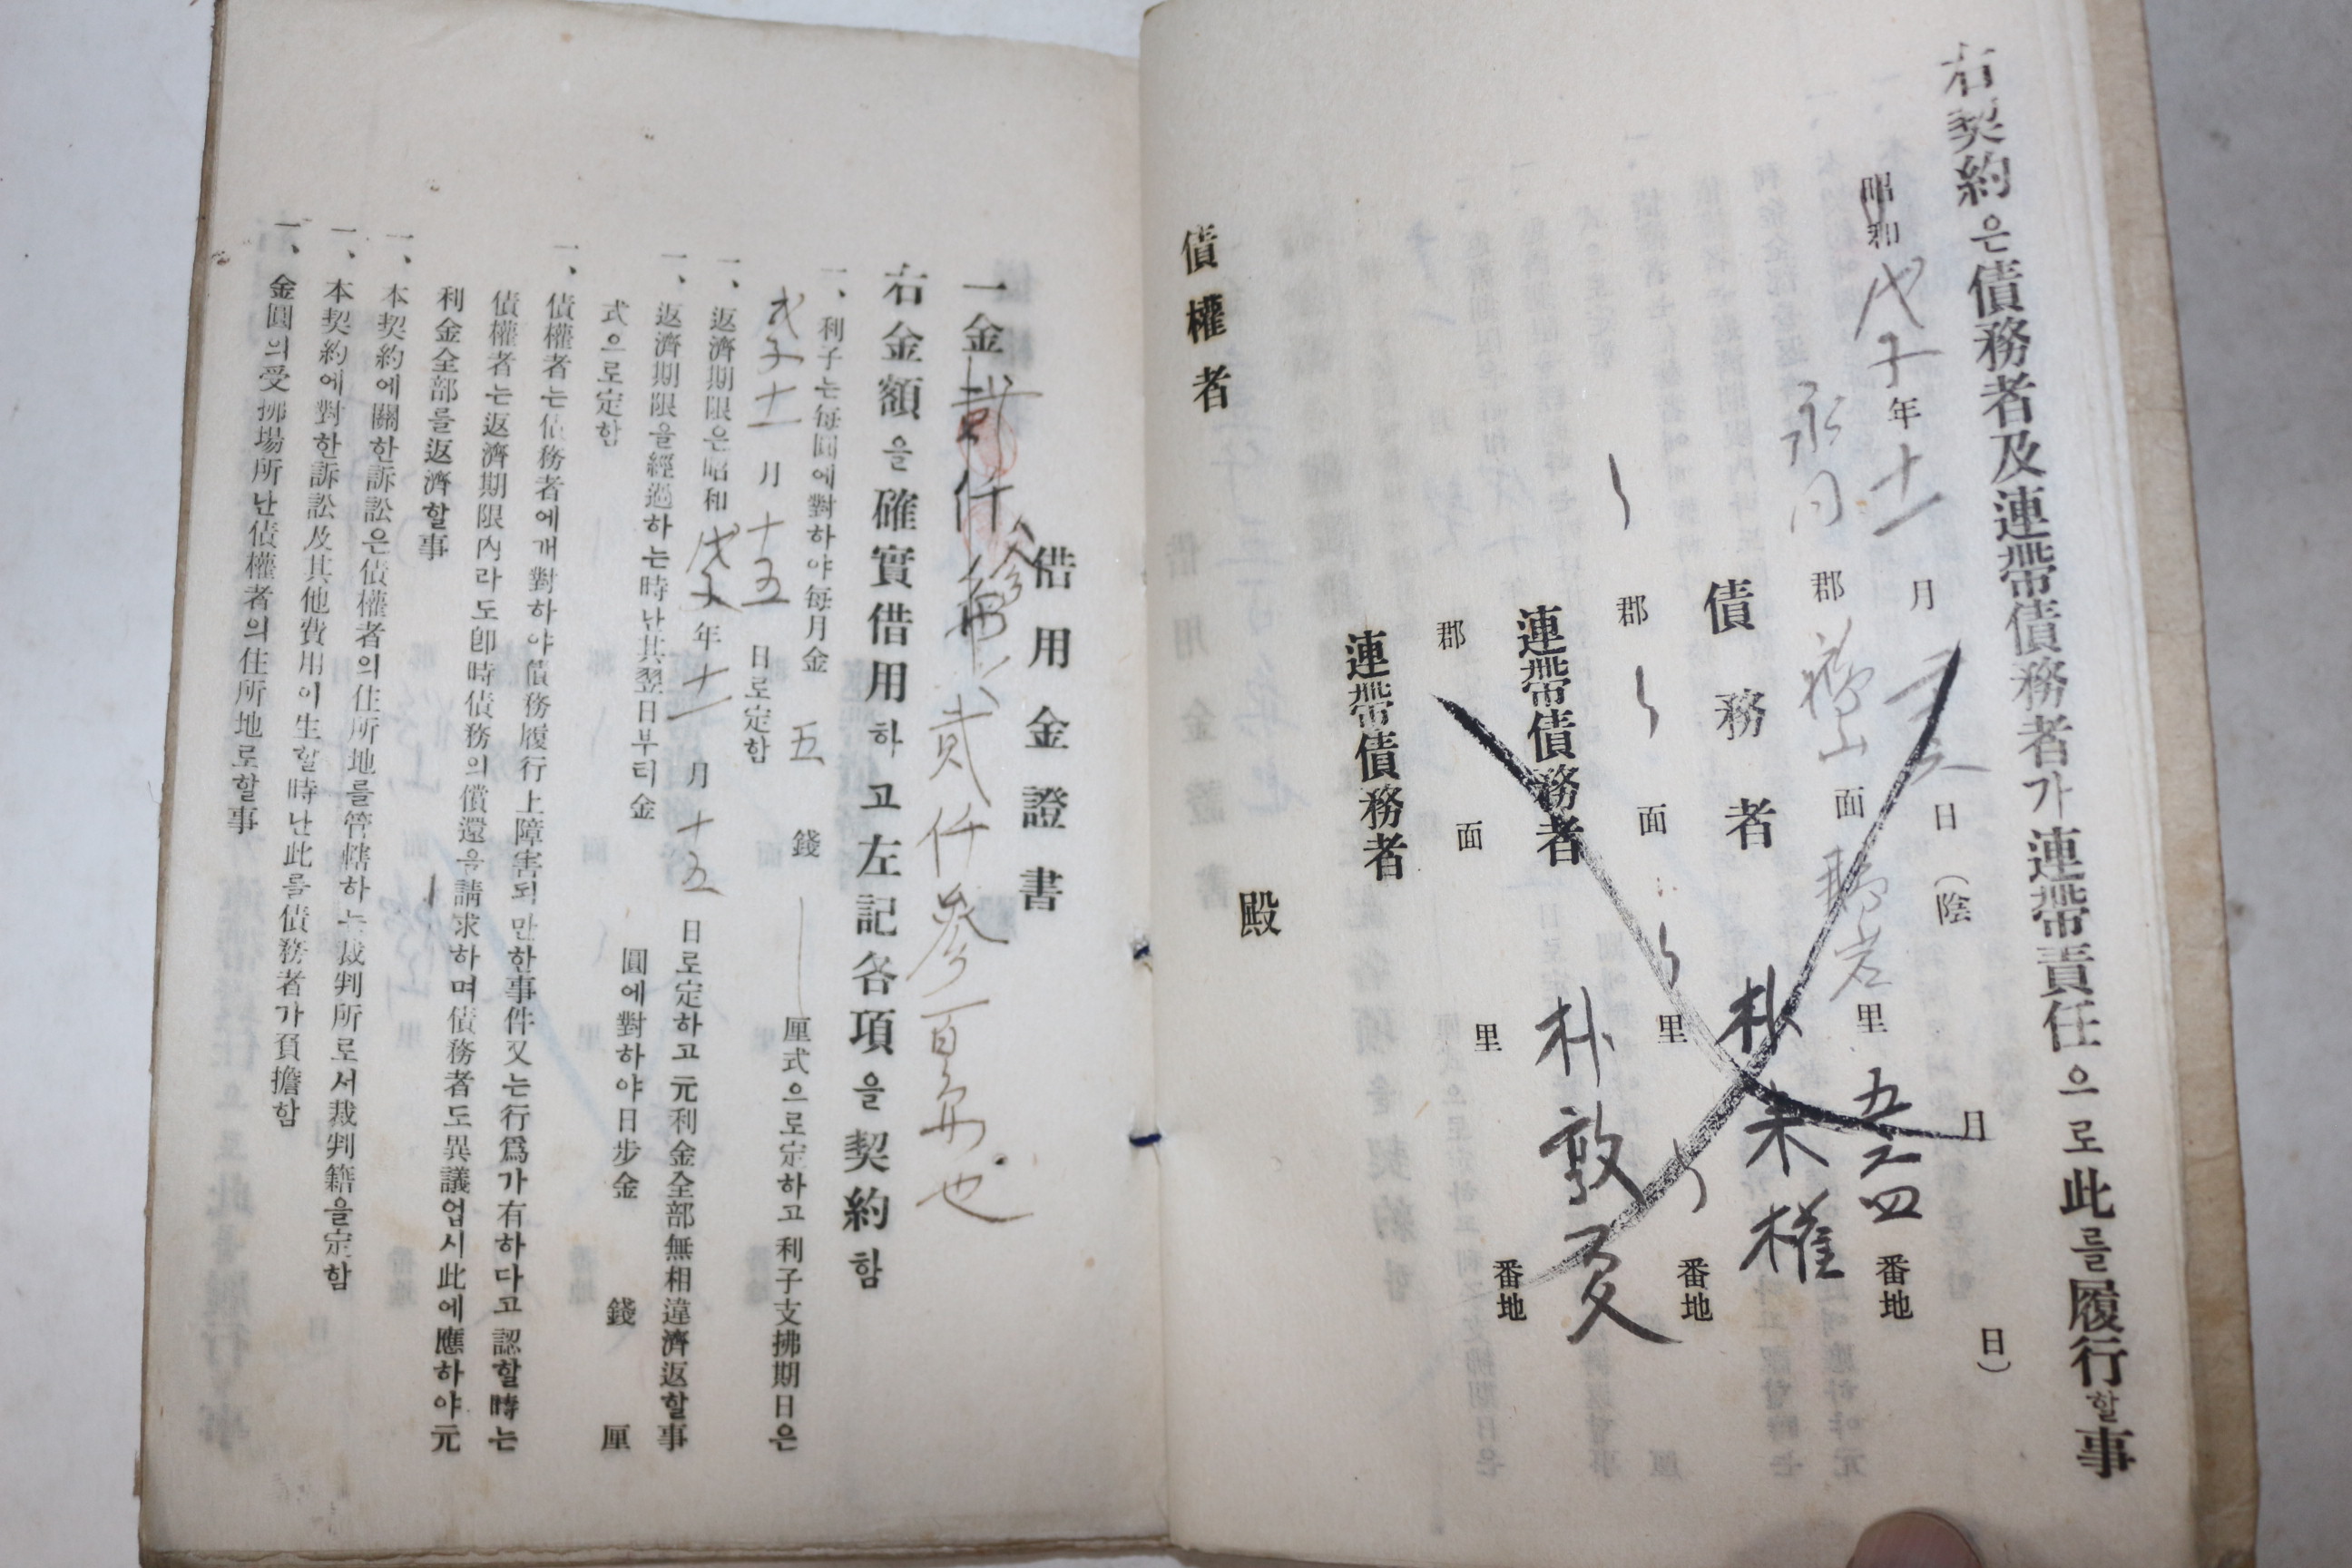 右契約은債務者及連帶債務者가連帶責任으로此를履行할事
昭和戊子年十一月 日(陰 月 日)
永同郡 山面 里五六四番地
債務者 朴未權
郡 面 里 番地
連帶債務者 朴敦 
郡 面 里 番地
連帶債務者
債權者 殿
借用金證書
一金 仟 貳仟參百 也
右金額을確實借用하고左記各項을契約함
一、利子는每圓에對하야每月金 五 錢 厘式으로定하고利子支拂期日은
戊子十一月十五日로定함
一、返濟期限은昭和戊子年十一月十五日로定하고元利金全部無相違濟返할事
一、返濟期限을經過하는時난其翌日부터金 圓에對하야日步金 錢 厘
式으로定함
一、債權者는債務者에개對하야債務履行上障害되만한事件又는行爲가有하다고認할時는
債權者는返濟期限內라도卽時債務의償還을請求하며債務者도異議업시此에應하야元
利金全部를返濟할事
一、本契約에關한訴訟은債權者의住所地를管轄하는裁判所로서裁判籍을定함
一、本契約에對한訴訟及其他費用이生할時난此를債務者가負擔함
一、金圓의受拂場所난債權者의住所地로할事